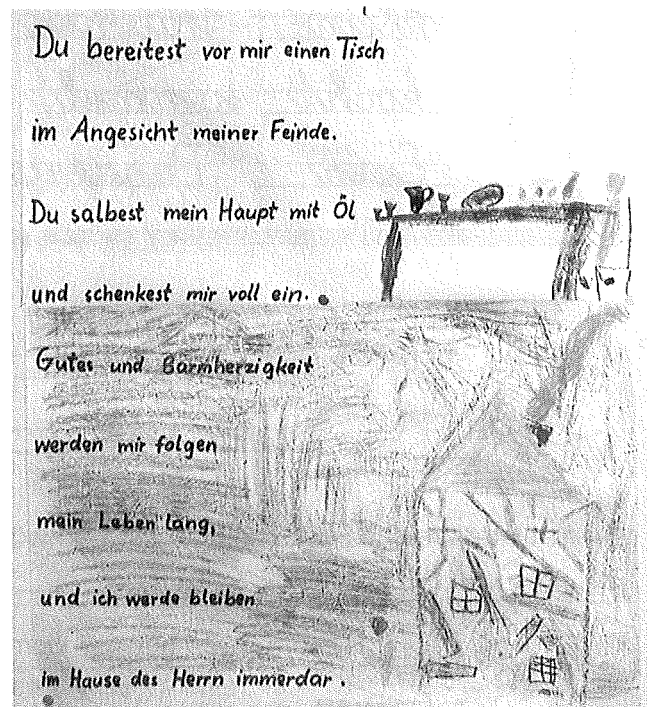 Du bereitest vor mir einen Tisch
im Angesicht meiner Feinde.
Du salbest mein Haupt mit Öl
und schenkest mir voll ein.
Gutes und Barmherzigkeit
werden mir folgen
mein Leben lang,
und ich werde bleiben
im Hause des Herrn immerdar.